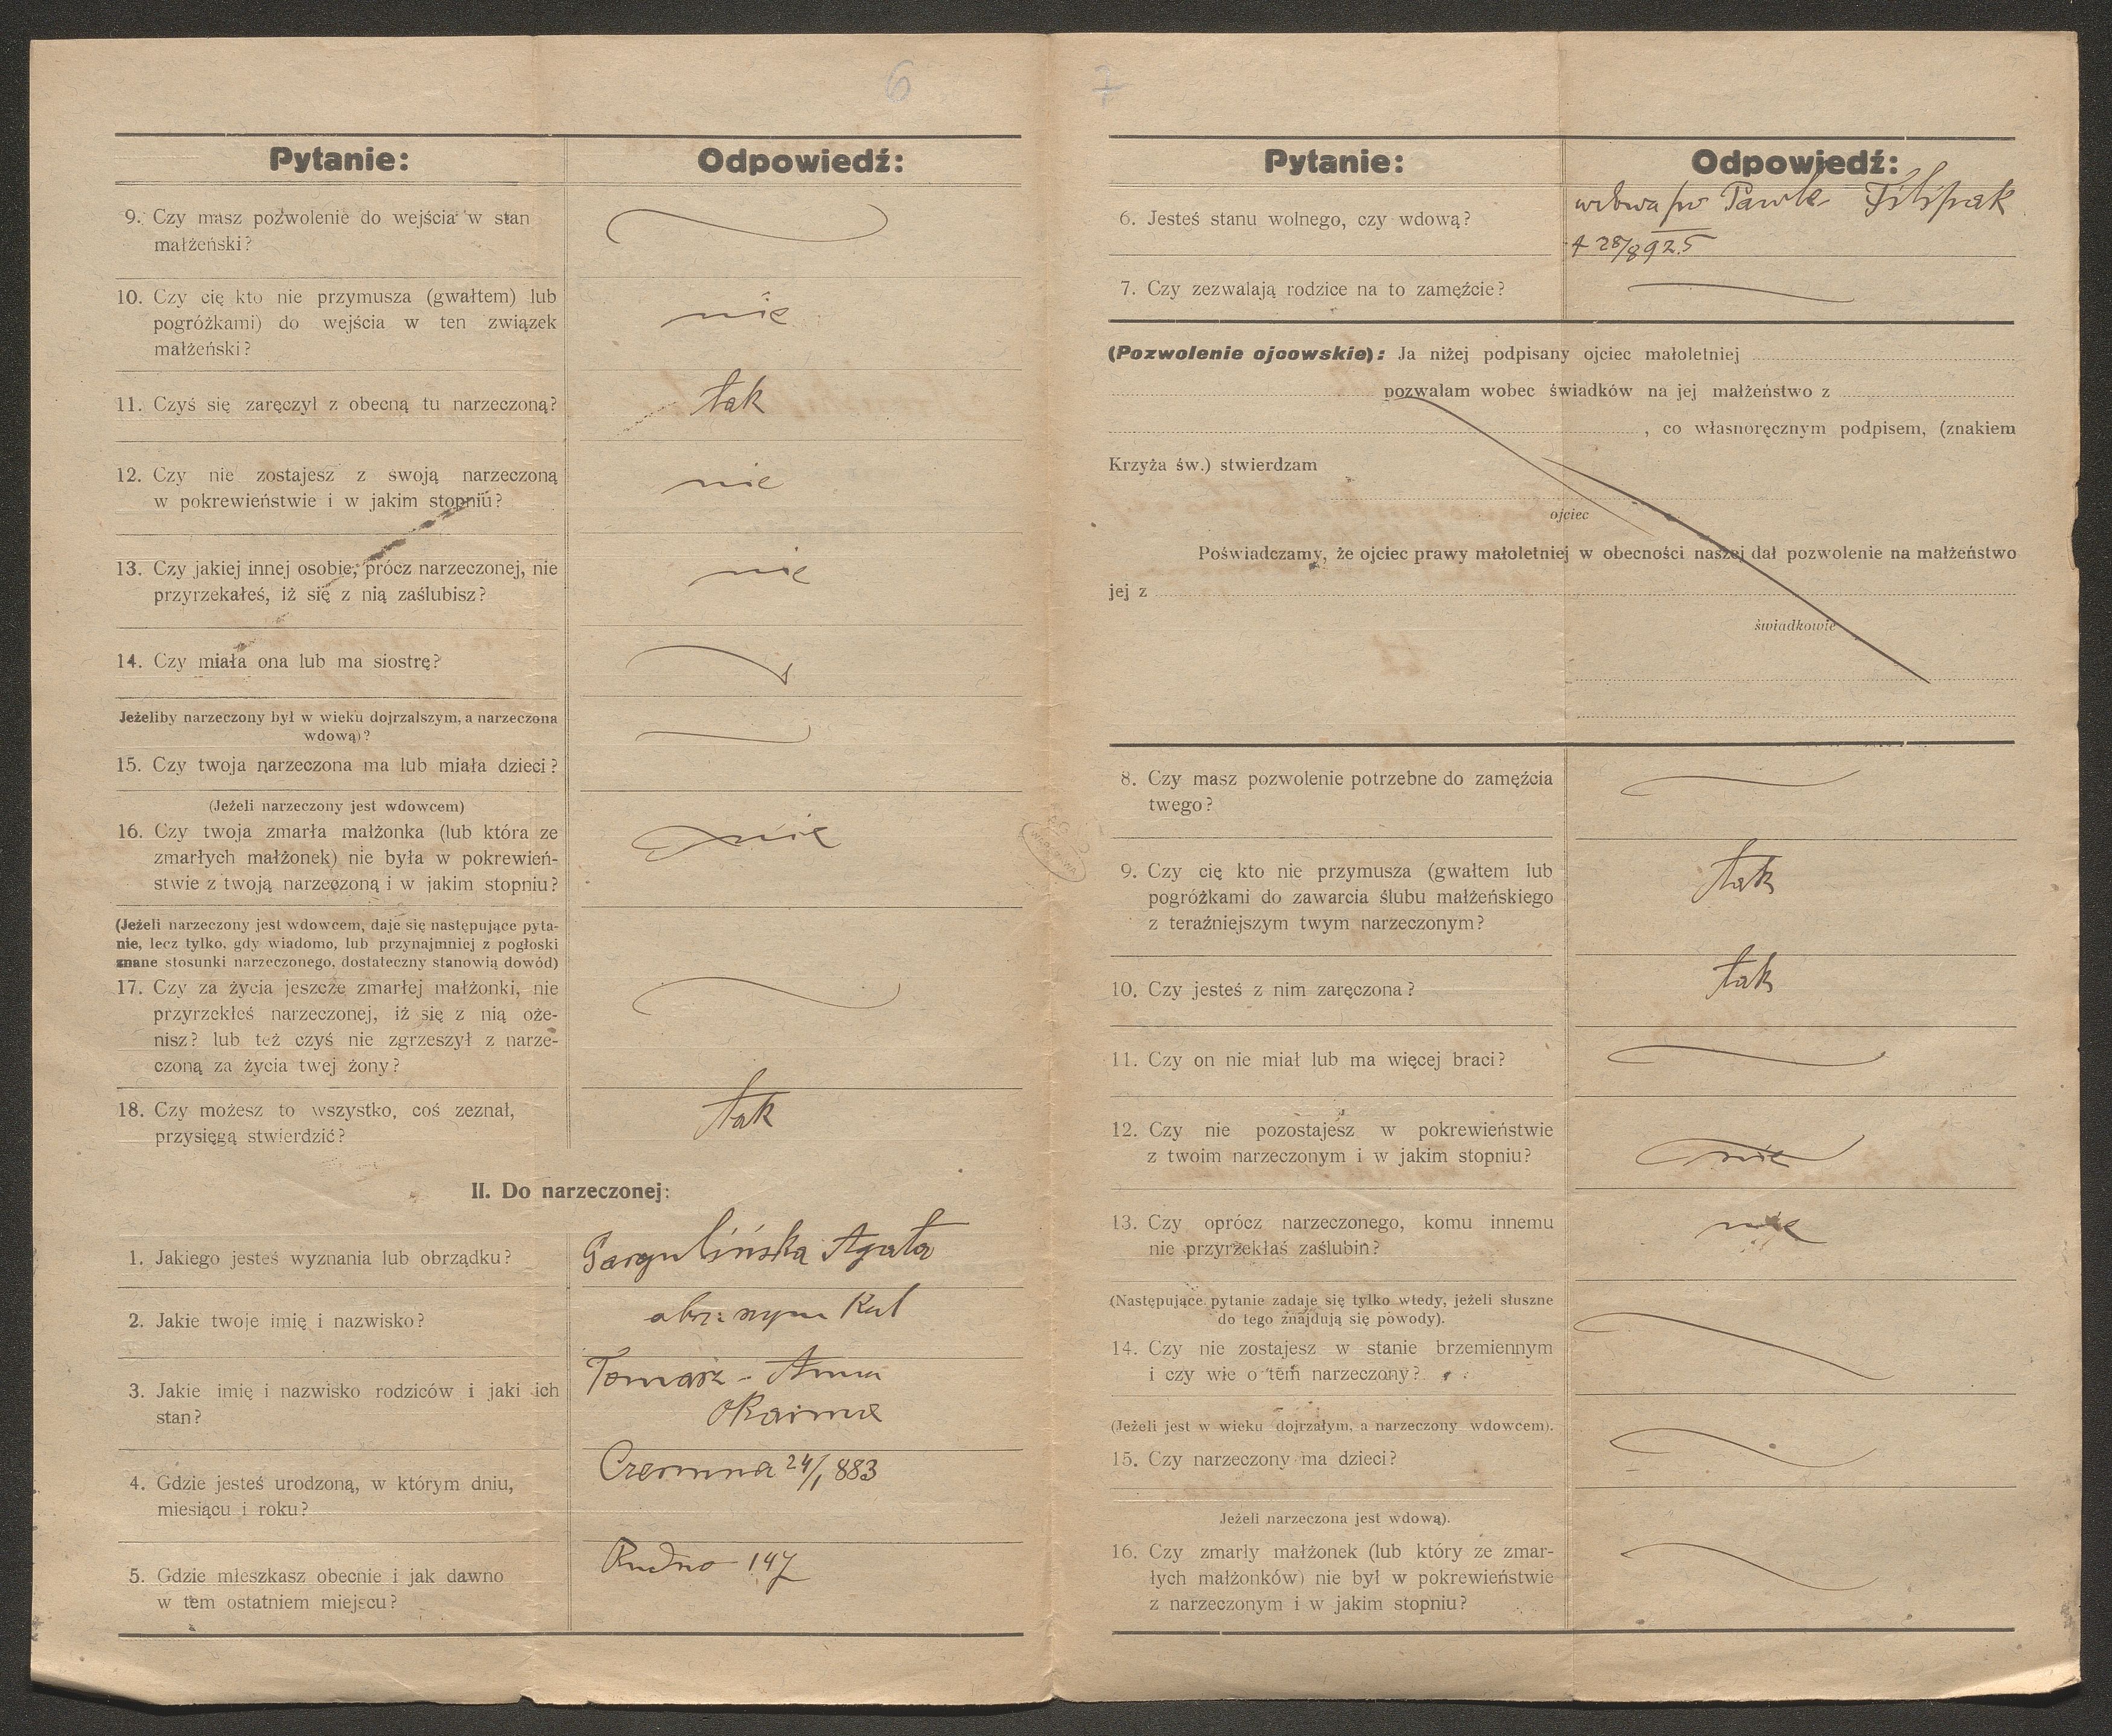 6
Pytanie:
Odpowiedź:
9. Czy masz pozwolenie do wejścia w stan
małżeński?
10. Czy cię kto nie przymusza (gwałtem) lub
pogróżkami) do wejścia w ten związek
małżeński?
nie
11. Czyś się zaręczył z obecną tu narzeczoną?
tak
12. Czy nie zostajesz z swoją narzeczoną
w pokrewieństwie i w jakim stopniu?
nie
13. Czy jakiej innej osobie, prócz narzeczonej, nie
przyrzekałeś, iż się z nią zaślubisz?
nie
14. Czy miała ona lub ma siostrę?
Jeżeliby narzeczony był w wieku dojrzalszym, a narzeczona
wdową)?
15. Czy twoja narzeczona ma lub miała dzieci?
(Jeżeli narzeczony jest wdowcem)
16. Czy twoja zmarła małżonka (lub która ze
zmarłych małżonek) nie była w pokrewień-
stwie z twoją narzeczoną i w jakim stopniu?
nie
(Jeżeli narzeczony jest wdowcem, daje się następujące pyta-
nie, lecz tylko, gdy wiadomo, lub przynajmniej z pogłoski
znane stosunki narzeczonego, dostateczny stanowią dowód)
17. Czy za życia jeszcze zmarłej małżonki, nie
przyrzekłeś narzeczonej, iż się z nią oże-
nisz? lub też czyś nie zgrzeszył z narze-
czoną za życia twej żony?
18. Czy możesz to wszystko, coś zeznał,
przysięgą stwierdzić?
tak
II. Do narzeczonej:
1. Jakiego jesteś wyznania lub obrządku?
Gargulińska Agata
2. Jakie twoje imię i nazwisko?
obrz: rzym Kat
3. Jakie imię i nazwisko rodziców i jaki ich
stan?
Tomasz - Anna
4. Gdzie jesteś urodzoną, w którym dniu,
miesiącu i roku?
Czermna 24/1 883
5. Gdzie mieszkasz obecnie i jak dawno
w tem ostatniem miejscu?
Rudno 147
7
Pytanie:
Odpowiedź:
6. Jesteś stanu wolnego, czy wdową?
wdowa po Pawle Filipak
+ 28/8 925
7. Czy zezwalają rodzice na to zamęźcie?
(Pozwolenie ojcowskie): Ja niżej podpisany ojciec małoletniej
pozwalam wobec świadków na jej małżeństwo z
, co własnoręcznym podpisem, (znakiem
Krzyża św.) stwierdzam
ojciec
Poświadczamy, że ojciec prawy małoletniej w obecności naszej dał pozwolenie na małżeństwo
jej z
świadkowie
8. Czy masz pozwolenie potrzebne do zamęźcia
twego?
9. Czy cię kto nie przymusza (gwałtem lub
pogróżkami do zawarcia ślubu małżeńskiego
z teraźniejszym twym narzeczonym?
tak
10. Czy jesteś z nim zaręczona?
tak
11. Czy on nie miał lub ma więcej braci?
12. Czy nie pozostajesz w pokrewieństwie
z twoim narzeczonym i w jakim stopniu?
nie
13. Czy oprócz narzeczonego, komu innemu
nie przyrzekłaś zaślubin?
nie
(Następujące pytanie zadaje się tylko wtedy, jeżeli słuszne
do tego znajdują się powody).
14. Czy nie zostajesz w stanie brzemiennym
i czy wie o tem narzeczony?
(Jeżeli jest w wieku dojrzałym, a narzeczony wdowcem).
15. Czy narzeczony ma dzieci?
Jeżeli narzeczona jest wdową).
16. Czy zmarły małżonek (lub który ze zmar-
łych małżonków) nie był w pokrewieństwie
z narzeczonym i w jakim stopniu?